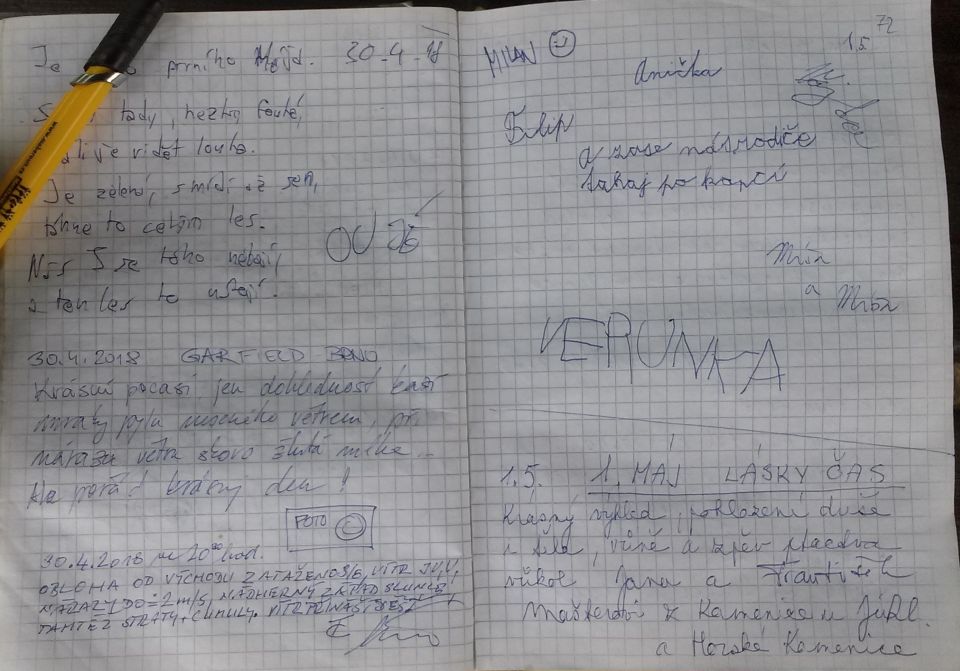 Je prvního Máje. 30-4-18
tady, hezky fouká,
je vidět louka.
Je zelení, smidi až sem,
táhne to celým les.
Nás 5 se toho nebojí,
a ten les to ustojí.
OU JE
30.4.2018 GARFIELD BRNO
Krásné počasí, jen dohlednost kazí
mraky pylu neseného větrem, při
nárazu větru skoro žlutá mlha...
Ale pořád krásný den!
FOTO
30.4.2018 ve 20°° hod.
OBLOHA OD VÝCHODU ZATAŽENO 5/8, VÍTR JV,V,
NÁRAZY DO 12 m/s, NÁDHERNÝ ZÁPAD SLUNCE,
TAMTÉŽ STRATY, CUMULY. VÍTR PŘINÁŠÍ DÉŠŤ,
72
1.5
MILAN
Anička
Filip
a zase
ťukaj po kopci
Míša
a Míša
VERUNKA
1.5. 1. MÁJ LÁSKY ČAS
Krásný výhled, pohlazení duše
i těla, vůně a zpěv ptactva
vůkol Jana a František
z Kamenice u Jihl.
a Horské Kamenice